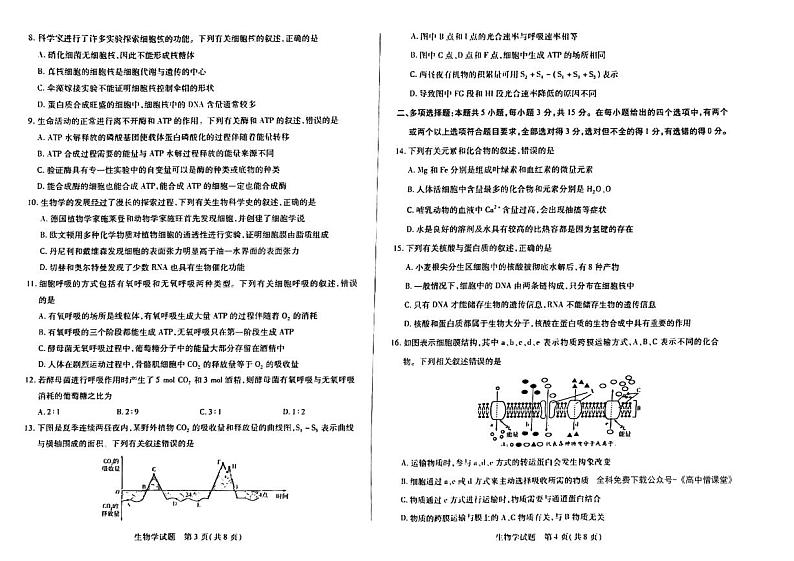 8. 科学家进行了许多实验探索细胞核的功能。下列有关细胞核的叙述,正确的是
A. 硝化细菌无细胞核,因此不能形成核糖体
B. 真核细胞的细胞核是细胞代谢与遗传的中心
C. 伞藻嫁接实验不能证明细胞核控制伞帽的形状
D. 蛋白质合成旺盛的细胞中,细胞核中的 DNA 含量通常较多
9. 生命活动的正常进行离不开酶和 ATP 的作用。下列有关酶和 ATP 的叙述,错误的是
A. ATP 水解释放的磷酸基团使载体蛋白磷酸化的过程伴随着能量转移
B. ATP 合成过程需要的能量与 ATP 水解过程释放的能量来源不同
C. 验证酶具有专一性实验中的自变量可以是酶的种类或底物的种类
D. 能合成酶的细胞也能合成 ATP,能合成 ATP 的细胞一定也能合成酶
10. 生物学的发展经过了漫长的探索过程,下列有关生物科学史的叙述,正确的是
A. 德国植物学家施莱登和动物学家施旺首先发现细胞,并创建了细胞学说
B. 欧文顿用多种化学物质对植物细胞的通透性进行实验,证明细胞膜由脂质组成
C. 丹尼利和戴维森发现细胞的表面张力明显高于油—水界面的表面张力
D. 切赫和奥尔特曼发现了少数 RNA 也具有生物催化功能
11. 细胞呼吸的方式包括有氧呼吸和无氧呼吸两种类型。下列有关细胞呼吸的叙述,错误
的是
A. 有氧呼吸的场所是线粒体,有氧呼吸生成大量 ATP 的过程伴随着 O₂ 的消耗
B. 有氧呼吸的三个阶段都能生成 ATP,无氧呼吸只在第一阶段生成 ATP
C. 酵母菌无氧呼吸过程中,葡萄糖分子中的能量大部分存留在酒精中
D. 人体在剧烈运动过程中,骨骼肌细胞中 CO₂ 的释放量等于 O₂ 的吸收量
12. 若酵母菌进行呼吸作用时产生了 5 mol CO₂ 和 3 mol 酒精,则酵母菌有氧呼吸与无氧呼吸
消耗的葡萄糖之比为
A. 2∶1 B. 2∶9 C. 3∶1 D. 1∶2
13. 下图是夏季连续两昼夜内,某野外植物 CO₂ 的吸收量和释放量的曲线图,S₁~S₅ 表示曲线
与横轴围成的面积。下列有关叙述错误的是
CO₂的
吸收量
O
时间
CO₂的
释放量
生物学试题 第 3 页(共 8 页)
A. 图中 B 点和 I 点的光合速率与呼吸速率相等
B. 图中 C 点、D 点和 F 点,细胞中生成 ATP 的场所相同
C. 两昼夜有机物的积累量可用 S₂+S₄-(S₁+S₃+S₅)表示
D. 导致图中 FG 段和 HI 段光合速率降低的原因不同
二、多项选择题:本题共 5 小题,每小题 3 分,共 15 分。在每小题给出的四个选项中,有两个
或两个以上选项符合题目要求,全部选对得 3 分,选对但不全的得 1 分,有选错的得 0 分。
14. 下列有关元素和化合物的叙述,错误的是
A. Mg 和 Fe 分别是组成叶绿素和血红素的微量元素
B. 人体活细胞中含量最多的化合物和元素分别是 H₂O、O
C. 哺乳动物的血液中 Ca²⁺含量过高,会出现抽搐等症状
D. 水是良好的溶剂及水具有较高的比热容都是因为氢键的存在
15. 下列有关核酸与蛋白质的叙述,正确的是
A. 小麦根尖分生区细胞中的核酸被彻底水解后,有 8 种产物
B. 一般情况下,细胞中的 DNA 由两条链构成,只分布在细胞核中
C. 只有 DNA 才能储存生物的遗传信息,RNA 不能储存生物的遗传信息
D. 核酸和蛋白质都属于生物大分子,核酸在蛋白质的生物合成中具有重要的作用
16. 如图表示细胞膜结构,其中 a、b、c、d、e 表示物质跨膜运输方式,A、B、C 表示不同的化合
物。下列相关叙述错误的是
能量
能量
A. 运输物质时,参与 a、d、e 方式的转运蛋白会发生构象改变
B. 细胞通过 a、c 或 d 方式来主动选择吸收所需的物质
全科免费下载公众号-《高中僧课堂》
C. 物质通过 c 方式进行运输时,物质需要与通道蛋白结合
D. 物质的跨膜运输与膜上的 A、C 物质有关,与 B 物质无关
生物学试题 第 4 页(共 8 页)